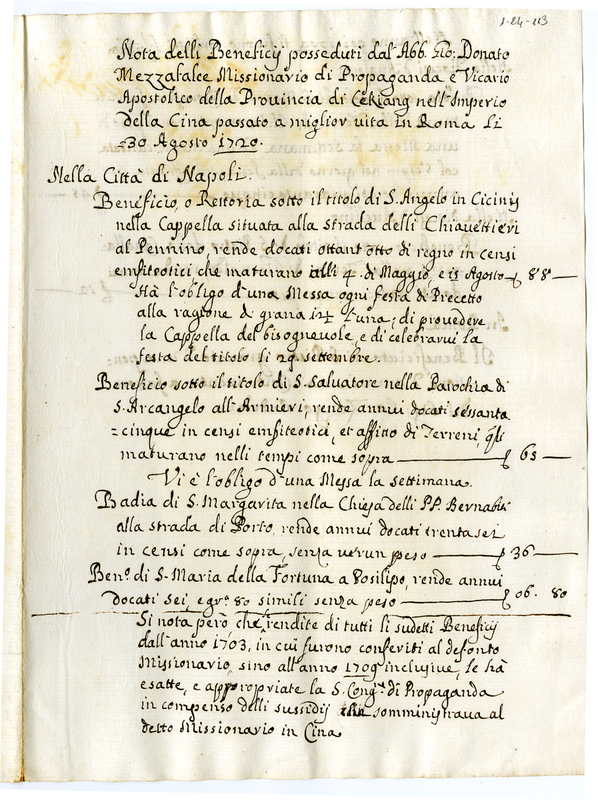 1-24-113
Nota delli Beneficij posseduti dal' Abb. Gio: Donato
Mezzafalce Missionario di Propaganda e Vicario
Apostolico della Provincia di Cekiang nell' Imperio
della Cina passato a miglior vita in Roma li
30 Agosto 1720.
Nella Città di Napoli.
Beneficio, o Rettoria sotto il titolo di S. Angelo in Cicinij
nella Cappella situata alla strada delli Chiavettieri
al Pennino, rende docati ottant' otto di regno in censi
emfiteotici che maturano alli 4. di Maggio, e 15 Agosto 88
Hà l'obligo d'una Messa ogni festa di Precetto
alla ragione di grana 12½ l'una; di provedere
la Cappella del bisognevole, e di celebrarvi la
festa del titolo li 29. settembre.
Beneficio sotto il titolo di S. Salvatore nella Parochia di
S. Arcangelo all' Armieri, rende annui docati sessanta
=cinque in censi emfiteotici, et affitto di Terreni, q̃li
maturano nelli tempi come sopra 65
Vi è l'obligo d'una Messa la settimana.
Badia di S. Margarita nella Chiesa delli PP. Bernabiti
alla strada di Porto, rende annui docati trentasei
in censi come sopra, senza verun peso 36
Ben.º di S. Maria della Fortuna a Posilipo, rende annui
docati sei, e gr.ª 80 simili senza peso 06. 80
Si nota però che rendite di tutti li sudetti Beneficij
dall' anno 1703, in cui furono conferiti al defonto
Missionario, sino all' anno 1709 inclusive, le hà
esatte, e appropriate la S. Cong.ne di Propaganda
in compenso delli sussidij somministrava al
detto Missionario in Cina